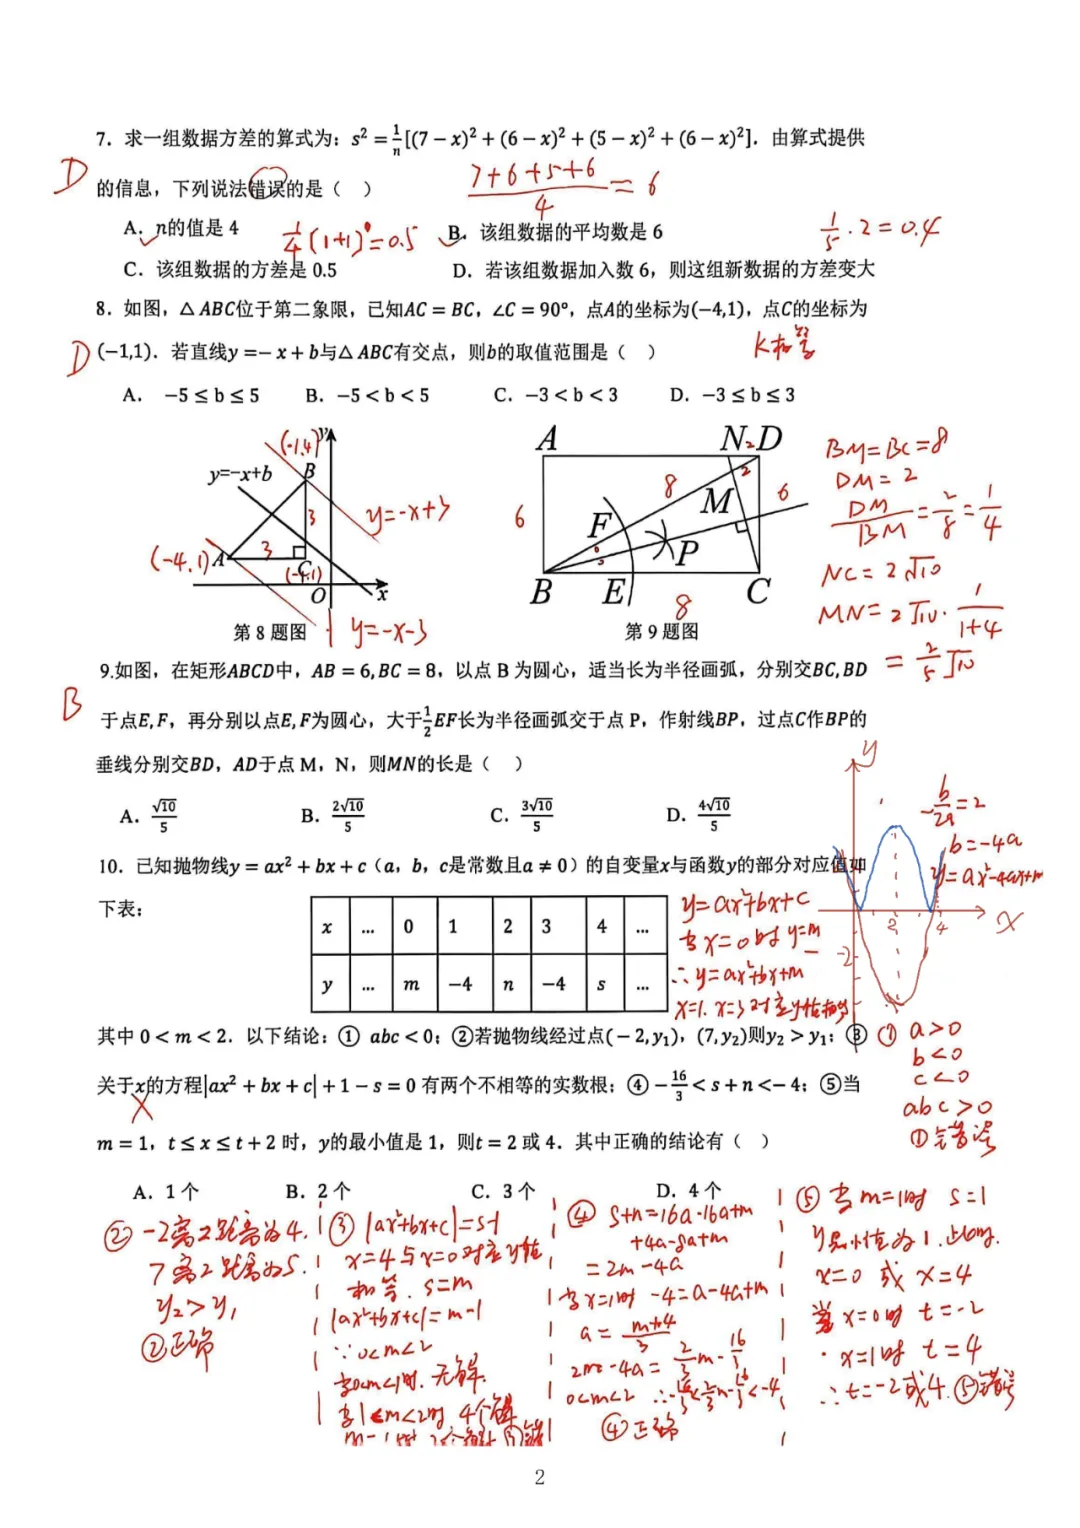 7. 求一组数据方差的算式为：s² = 1/n[(7 − x)² + (6 − x)² + (5 − x)² + (6 − x)²]. 由算式提供
D
的信息，下列说法错误的是（ ）
7+6+5+6/4 = 6
A. n的值是 4
1/4(1+1) = 0.5
B. 该组数据的平均数是 6
1/5·2=0.4
C. 该组数据的方差是 0.5
D. 若该组数据加入数 6，则这组新数据的方差变大
8. 如图，△ABC位于第二象限，已知AC = BC，∠C = 90°，点A的坐标为(−4,1)，点C的坐标为
D
(−1,1). 若直线y =− x + b与△ABC有交点，则b的取值范围是（ ）
K相等
A. −5 ≤ b ≤ 5
B. −5 < b < 5
C. −3 < b < 3
D. −3 ≤ b ≤ 3
(-1,4)
y
y=−x+b
B
3
y=-x+3
(-4,1)
A
3
C
(-1,1)
O
x
y=-x-3
第 8 题图
A
N
2
D
2
8
M
6
6
F
P
B
E
8
C
第 9 题图
BM=BC=8
DM=2
DM/BM = 2/8 = 1/4
NC=2√10
MN=2√10·1/1+4
=2/5√10
9.如图，在矩形ABCD中，AB = 6,BC = 8，以点 B 为圆心，适当长为半径画弧，分别交BC,BD
B
于点E,F，再分别以点E,F为圆心，大于1/2EF长为半径画弧交于点 P，作射线BP，过点C作BP的
垂线分别交BD，AD于点 M，N，则MN的长是（ ）
A. √10/5
B. 2√10/5
C. 3√10/5
D. 4√10/5
y
-b/2a=2
b=-4a
y=ax²-4ax+m
x
2
4
-2
10. 已知抛物线y = ax² + bx + c（a，b，c是常数且a ≠ 0）的自变量x与函数y的部分对应值如
下表：
x … 0 1 2 3 4 …
y … m −4 n −4 s …
y=ax²+bx+c
当x=0时 y=m
∴y=ax²+bx+m
x=1. x=3对应y值相等
其中 0 < m < 2. 以下结论：① abc < 0；②若抛物线经过点(− 2,y₁)，(7,y₂)则y₂ > y₁；③
关于x的方程|ax² + bx + c| + 1 − s = 0 有两个不相等的实数根；④ − 16/3 < s + n <− 4；⑤当
m = 1，t ≤ x ≤ t + 2 时，y的最小值是 1，则t = 2 或 4. 其中正确的结论有（ ）
A. 1 个
B. 2 个
C. 3 个
D. 4 个
① a>0
b<0
c<0
abc>0
①错误
② -2离2距离为4.
7离2距离为5.
y₂>y₁
②正确
③ |ax²+bx+c|=s-1
x=4与x=0对应y值
相等. s=m
|ax²+bx+c|=m-1
∵0<m<2
当0<m<1时. 无解.
当1<m<2时 4个解
④ s+n=16a-16a+m
+4a-8a+m
=2m-4a
当x=1时 -4=a-4a+m
a=m+4/3
2m-4a=2/3m-16/3
0<m<2 ∴-16/3<2/3m-16/3<-4
④正确
⑤当m=1时 s=1
y最小值为1. 此时.
x=0 或 x=4
当x=0时 t=-2
x=1时 t=4
∴t=-2或4. ⑤错误
2